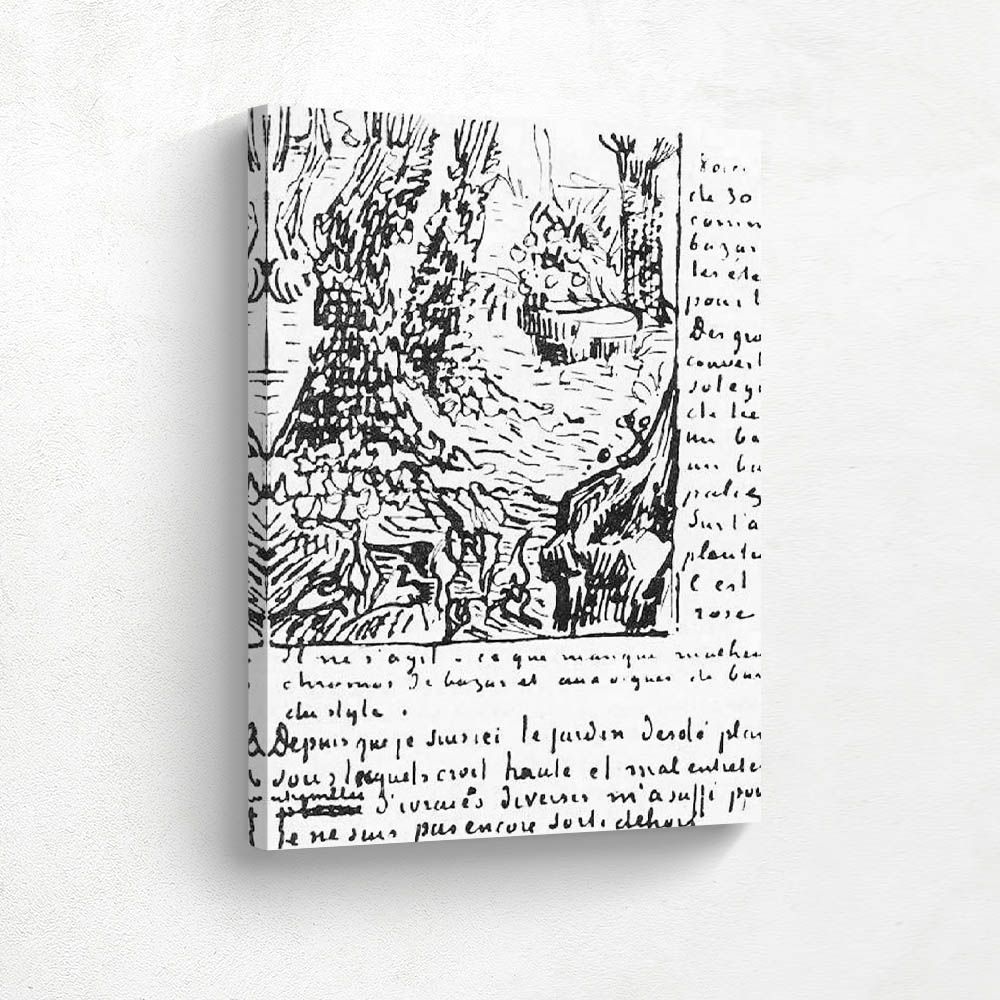 Voici
de 30
comm
bazar
les éte
pour l
Des gro
couvert
de lie
un ba
un ba
pales
Sur l'a
plante
C est
rose
il ne s'agit - ce que manque
chromos de bazar et aux orgues de bar
du style.
Depuis que je suis ici le jardin desolé plan
sous lesquels croit haute et mal entrete
d'ivraies diverses m'a suffi pou
je ne suis pas encore sorti dehors